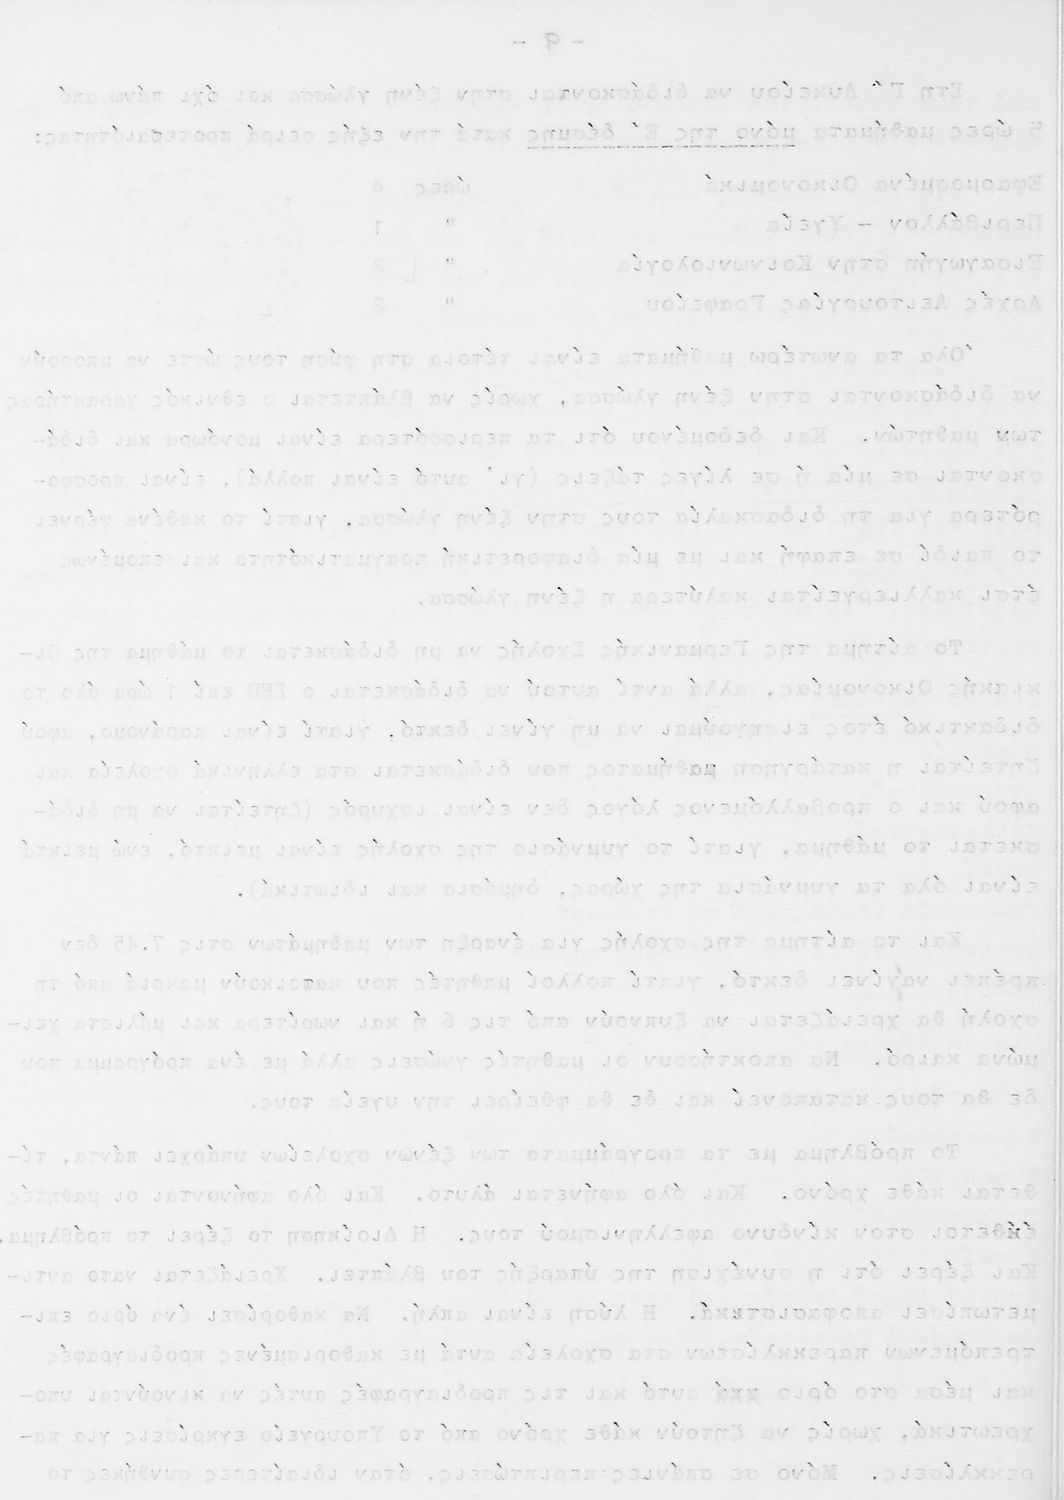 - 7 -
Στη Γ΄ Λυκείου να διδάσκονται στην ξένη γλώσσα και όχι πάνω από
5 ώρες μαθήματα μόνο της Ε΄ δέσμης κατά την εξής σειρά προτεραιότητας:
Εφαρμοσμένα Οικονομικά ώρες 4
Περιβάλλον - Υγεία " 1
Εισαγωγή στην Κοινωνιολογία " 2
Αρχές Λειτουργίας Γραφείου " 2
Όλα τα ανωτέρω μαθήματα είναι τέτοια στη φύση τους ώστε να μπορούν
να διδάσκονται στην ξένη γλώσσα, χωρίς να βλάπτεται ο εθνικός χαρακτήρας
των μαθητών. Και δεδομένου ότι τα περισσότερα είναι μονόωρα και διδά-
σκονται σε μία ή σε λίγες τάξεις (γι' αυτό είναι πολλά), είναι προσφο-
ρότερα για τη διδασκαλία τους στην ξένη γλώσσα, γιατί το καθένα φέρνει
το παιδί σε επαφή και με μία διαφορετική πραγματικότητα και επομένως
έτσι καλλιεργείται καλύτερα η ξένη γλώσσα.
Το αίτημα της Γερμανικής Σχολής να μη διδάσκεται το μάθημα της Οι-
κιακής Οικονομίας, αλλά αντί αυτού να διδάσκεται ο ΣΕΠ επί 1 ώρα όλο το
διδακτικό έτος εισηγούμαι να μη γίνει δεκτό, γιατί είναι παράνομο, αφού
ζητείται η κατάργηση μαθήματος που διδάσκεται στα ελληνικά σχολεία και
αφού και ο προβαλλόμενος λόγος δεν είναι ισχυρός (ζητείται να μη διδά-
σκεται το μάθημα, γιατί το γυμνάσιο της σχολής είναι μεικτό, ενώ μεικτά
είναι όλα τα γυμνάσια της χώρας, δημόσια και ιδιωτικά).
Και το αίτημα της σχολής για έναρξη των μαθημάτων στις 7.45 δεν
πρέπει να γίνει δεκτό, γιατί πολλοί μαθητές που κατοικούν μακριά από τη
σχολή θα χρειάζεται να ξυπνούν από τις 6 ή και νωρίτερα και μάλιστα χει-
μώνα καιρό. Να αποκτήσουν οι μαθητές γνώσεις αλλά με ένα πρόγραμμα που
δε θα τους καταπονεί και δε θα φθείρει την υγεία τους.
Το πρόβλημα με τα προγράμματα των ξένων σχολείων υπάρχει πάντα, τί-
θεται κάθε χρόνο. Και όλο αφήνεται άλυτο. Και όλο αφήνονται οι μαθητές
έκθετοι στον κίνδυνο αφελληνισμού τους. Η Διοίκηση το ξέρει το πρόβλημα.
Και ξέρει ότι η συνέχιση της ύπαρξής του βλάπτει. Χρειάζεται νατο αντι-
μετωπίσει αποφασιστικά. Η λύση είναι απλή. Να καθορίσει ένα όριο επι-
τρεπόμενων παρεκκλίσεων στα σχολεία αυτά με καθορισμένες προδιαγραφές
και μέσα στο όριο αυτό και τις προδιαγραφές αυτές να κινούνται υπο-
χρεωτικά, χωρίς να ζητούν κάθε χρόνο από το Υπουργείο εγκρίσεις για πα-
ρεκκλίσεις. Μόνο σε σπάνιες περιπτώσεις, όταν ιδιαίτερες συνθήκες το